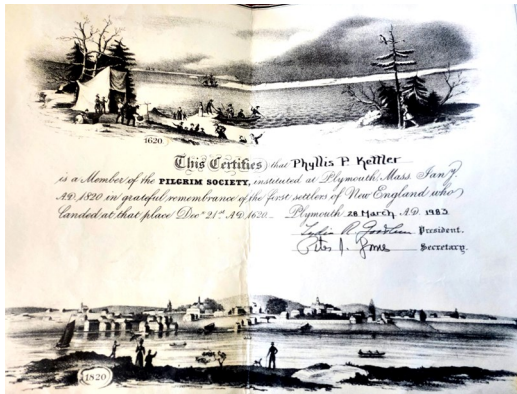 1620.
This Certifies that Phyllis P Kettler
is a Member of the PILGRIM SOCIETY, instituted at Plymouth Mass Jan y
A.D. 1820 in grateful remembrance of the first settlers of New England who
landed at that place Dec 21st A.D. 1620. Plymouth 28 March A.D. 1983
President.
Peter J. Secretary.
1820